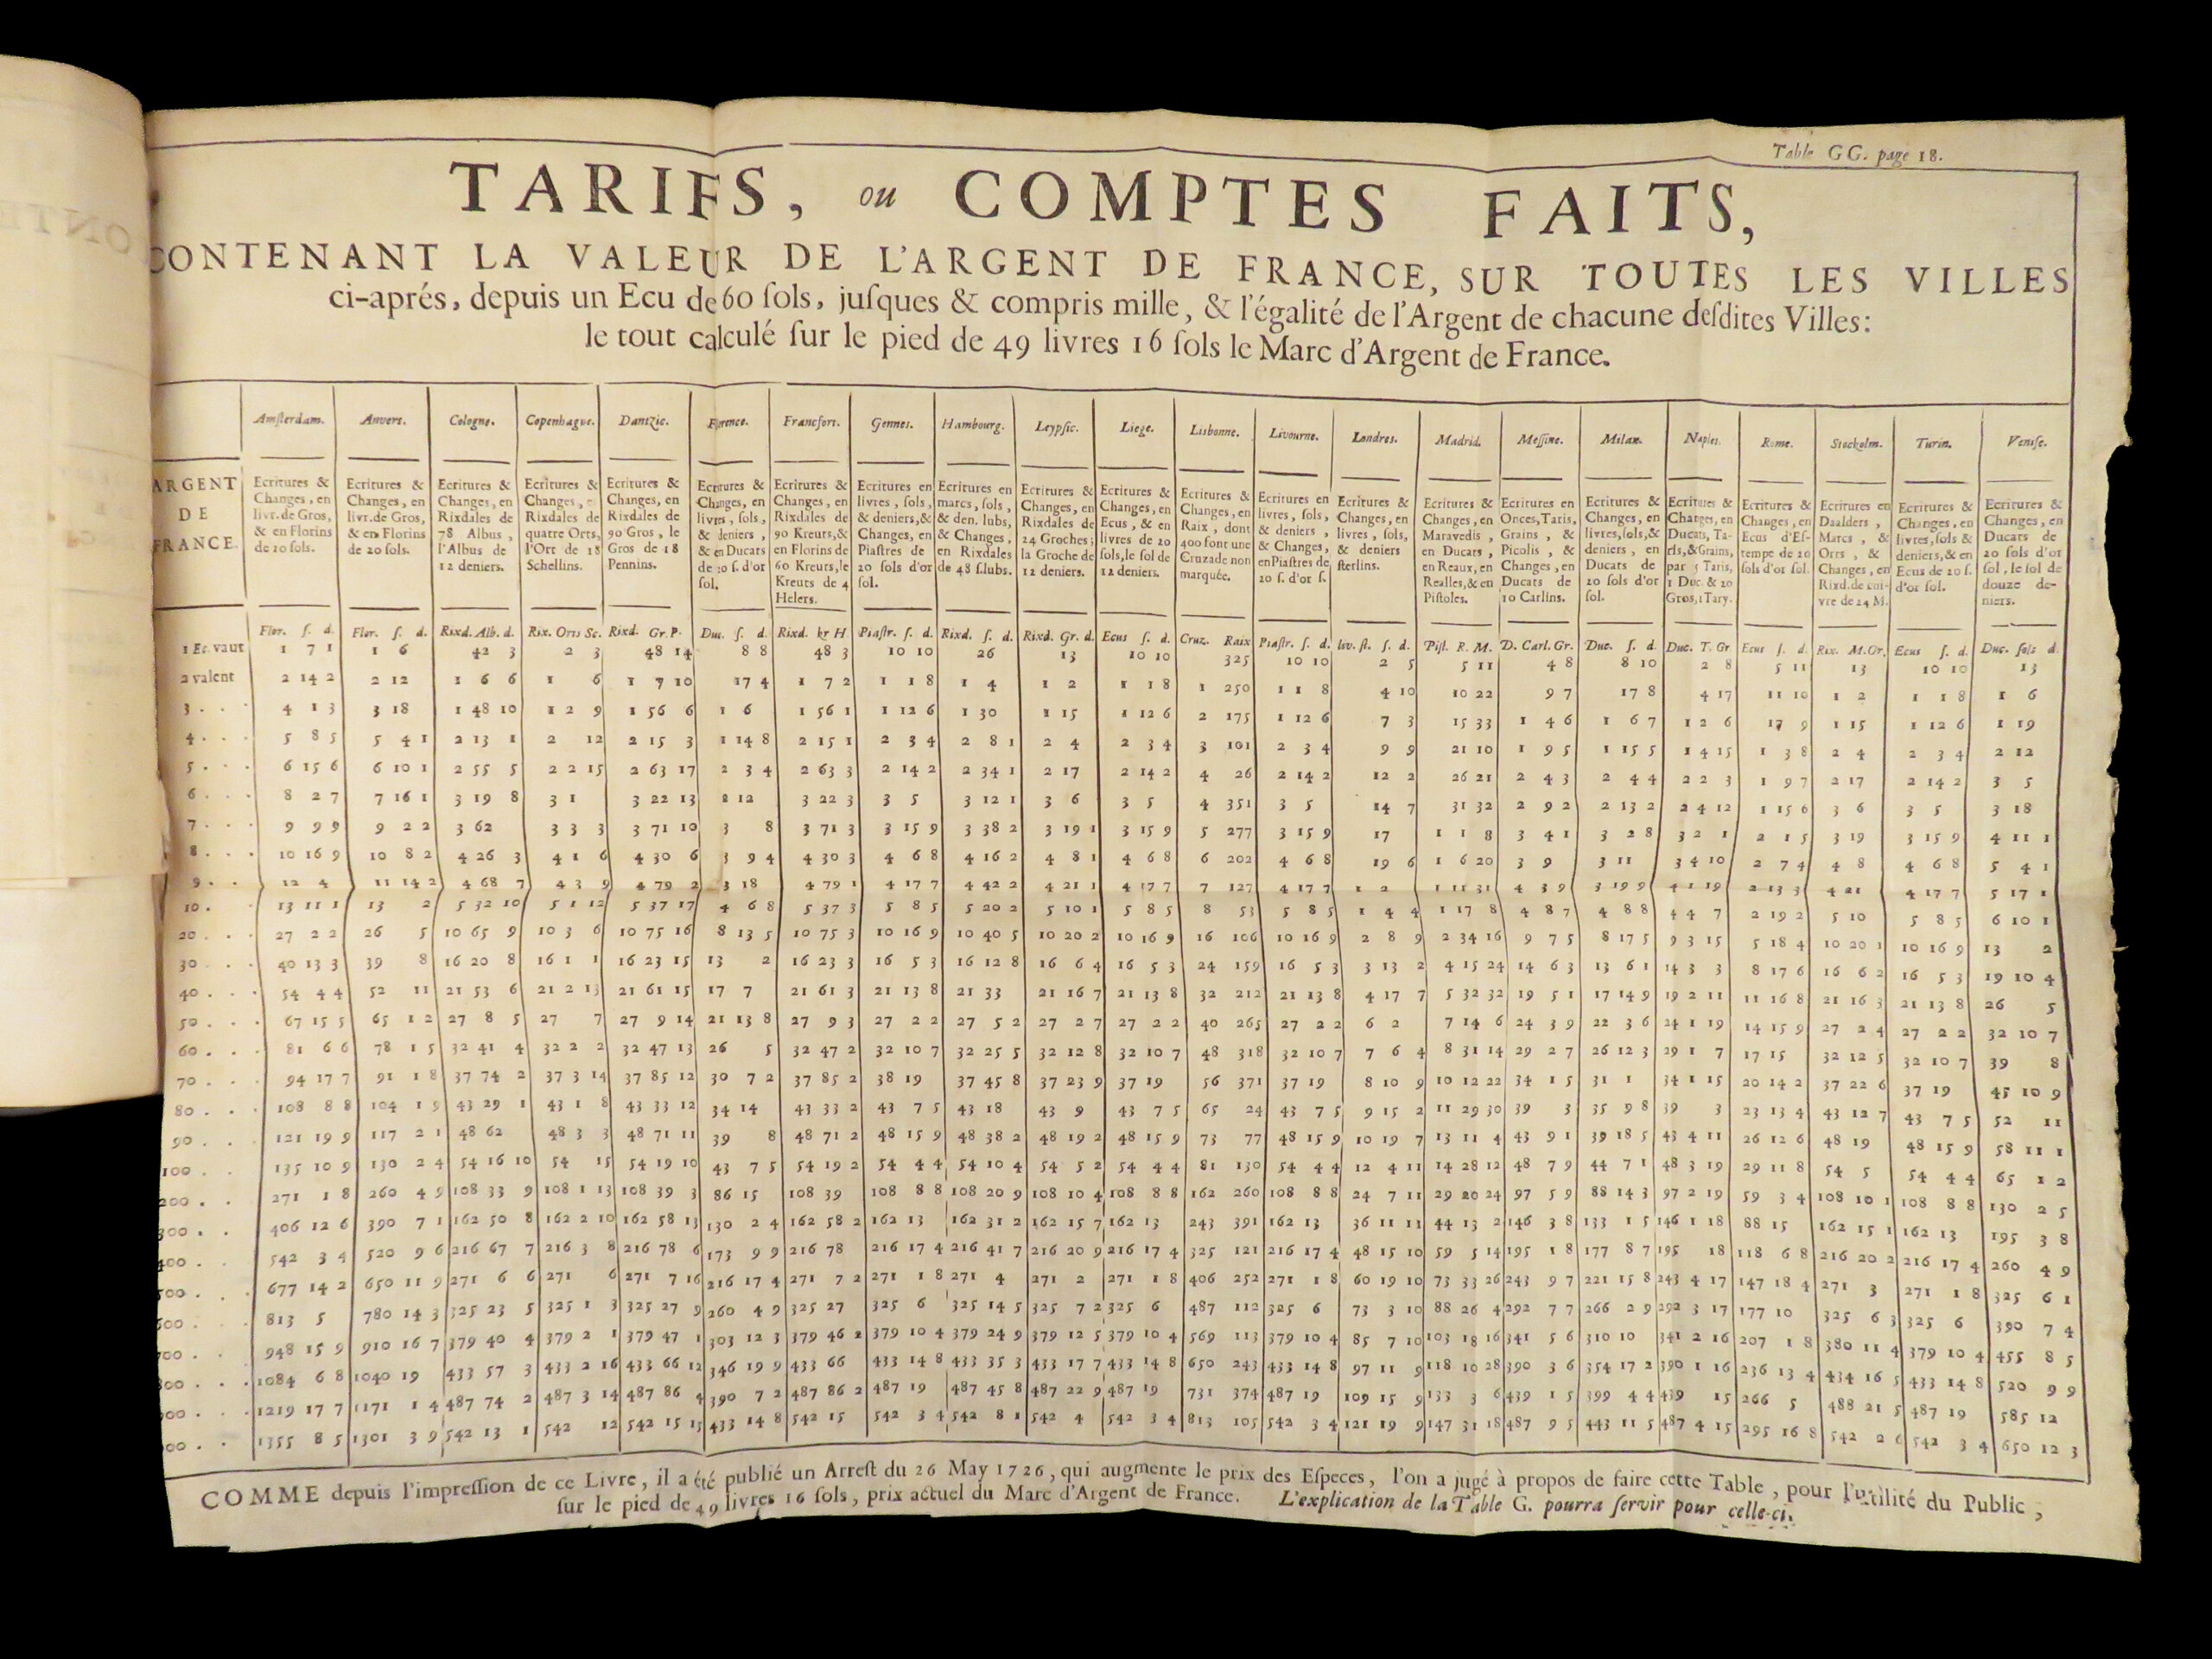 Table GG. page 18.
TARIFS, ou COMPTES FAITS,
CONTENANT LA VALEUR DE L'ARGENT DE FRANCE, SUR TOUTES LES VILLES
ci-aprés, depuis un Ecu de 60 ſols, juſques & compris mille, & l'égalité de l'Argent de chacune deſdites Villes:
le tout calculé ſur le pied de 49 livres 16 ſols le Marc d'Argent de France.
Amſterdam. Anvers. Cologne. Copenhague. Dantzic. Florence. Francfort. Gennes. Hambourg. Leypſic. Liege. Lisbonne. Livourne. Londres. Madrid. Meſſine. Milan. Naples. Rome. Stockolm. Turin. Veniſe.
ARGENT
DE
FRANCE.
Ecritures &
Changes, en
livr. de Gros,
& en Florins
de 20 ſols.
Ecritures &
Changes, en
livr. de Gros,
& en Florins
de 20 ſols.
Ecritures &
Changes, en
Rixdales de
78 Albus,
l'Albus de
12 deniers.
Ecritures &
Changes, en
Rixdales de
quatre Orts,
l'Ort de 18
Schellins.
Ecritures &
Changes, en
Rixdales de
90 Gros, le
Gros de 18
Pennins.
Ecritures &
Changes, en
livres, ſols,
& deniers,
& en Ducats
de 20 ſ. d'or
ſol.
Ecritures &
Changes, en
Rixdales de
90 Kreuts, &
en Florins de
60 Kreuts, le
Kreuts de 4
Helers.
Ecritures en
livres, ſols,
& deniers, &
Changes, en
Piaſtres de
20 ſols d'or
ſol.
Ecritures en
marcs, ſols,
& den. lubs,
& Changes,
en Rixdales
de 48 ſ. lubs.
Ecritures &
Changes, en
Rixdales de
24 Groches;
la Groche de
12 deniers.
Ecritures &
Changes, en
Ecus, & en
livres de 20
ſols, le ſol de
12 deniers.
Ecritures &
Changes, en
Raix, dont
400 font une
Cruzade non
marquée.
Ecritures en
livres, ſols,
& deniers,
& Changes,
en Piaſtres de
20 ſ. d'or ſ.
Ecritures &
Changes, en
livres, ſols,
& deniers
ſterlins.
Ecritures &
Changes, en
Maravedis,
en Ducats,
en Reaux, en
Realles, & en
Piſtoles.
Ecritures en
Onces, Taris,
Grains, &
Picolis, &
Changes, en
Ducats de
10 Carlins.
Ecritures &
Changes, en
livres, ſols, &
deniers, en
Ducats de
20 ſols d'or
ſol.
Ecritures &
Changes, en
Ducats, Ta-
ris, & Grains,
par 5 Taris,
1 Duc. & 20
Gros, 1 Tary.
Ecritures &
Changes, en
Ecus d'Eſ-
tempe de 20
ſols d'or ſol.
Ecritures en
Daalders,
Marcs, &
Orts, &
Changes, en
Rixd. de cui-
vre de 24 M.
Ecritures &
Changes, en
livres, ſols &
deniers, & en
Ecus de 20 ſ.
d'or ſol.
Ecritures &
Changes, en
Ducats de
20 ſols d'or
ſol, le ſol de
douze de-
niers.
Flor. ſ. d. Flor. ſ. d. Rixd. Alb. d. Rix. Orts Sc. Rixd. Gr. P. Duc. ſ. d. Rixd. kr H Piaſtr. ſ. d. Rixd. ſ. d. Rixd. Gr. d. Ecus ſ. d. Cruz. Raix Piaſtr. ſ. d. liv. ſt. ſ. d. Piſt. R. M. D. Carl. Gr. Duc. ſ. d. Duc. T. Gr. Ecus ſ. d. Rix. M. Or. Ecus ſ. d. Duc. ſols d.
1 Ec. vaut 1 7 1 1 6 42 3 2 3 48 14 8 8 48 3 10 10 26 13 10 10 325 10 10 2 5 5 11 4 8 8 10 2 8 5 11 13 10 10 13
2 valent 2 14 2 2 12 1 6 6 1 6 1 7 10 17 4 1 7 2 1 1 8 1 4 1 2 1 1 8 1 250 1 1 8 4 10 10 22 9 7 17 8 4 17 11 10 1 2 1 1 8 1 6
3 . . . 4 1 3 3 18 1 48 10 1 2 9 1 56 6 1 6 1 56 1 1 12 6 1 30 1 15 1 12 6 2 175 1 12 6 7 3 15 33 1 4 6 1 6 7 1 2 6 17 9 1 15 1 12 6 1 19
4 . . . 5 8 5 5 4 1 2 13 1 2 12 2 15 3 1 14 8 2 15 1 2 3 4 2 8 1 2 4 2 3 4 3 101 2 3 4 9 9 21 10 1 9 5 1 15 5 1 4 15 1 3 8 2 4 2 3 4 2 12
5 . . . 6 15 6 6 10 1 2 55 5 2 2 15 2 63 17 2 3 4 2 63 3 2 14 2 2 34 1 2 17 2 14 2 4 26 2 14 2 12 2 26 21 2 4 3 2 4 4 2 2 3 1 9 7 2 17 2 14 2 3 5
6 . . . 8 2 7 7 16 1 3 19 8 3 1 3 22 13 2 12 3 22 3 3 5 3 12 1 3 6 3 5 4 351 3 5 14 7 31 32 2 9 2 2 13 2 2 4 12 1 15 6 3 6 3 5 3 18
7 . . . 9 9 9 9 2 2 3 62 3 3 3 3 71 10 3 8 3 71 3 3 15 9 3 38 2 3 19 1 3 15 9 5 277 3 15 9 17 1 1 8 3 4 1 3 2 8 3 2 1 2 1 5 3 19 3 15 9 4 11 1
8 . . . 10 16 9 10 8 2 4 26 3 4 1 6 4 30 6 3 9 4 4 30 3 4 6 8 4 16 2 4 8 1 4 6 8 6 202 4 6 8 19 6 1 6 20 3 9 3 11 3 4 10 2 7 4 4 8 4 6 8 5 4 1
9 . . 12 4 11 14 2 4 68 7 4 3 9 4 79 2 3 18 4 79 1 4 17 7 4 42 2 4 21 1 4 17 7 7 127 4 17 7 1 2 1 11 31 4 3 9 3 19 9 4 1 19 2 13 3 4 21 4 17 7 5 17 1
10 . . 13 11 1 13 2 5 32 10 5 1 12 5 37 17 4 6 8 5 37 3 5 8 5 5 20 2 5 10 1 5 8 5 8 53 5 8 5 1 4 4 1 17 8 4 8 7 4 8 8 4 4 7 2 19 2 5 10 5 8 5 6 10 1
20 . . . 27 2 2 26 5 10 65 9 10 3 6 10 75 16 8 13 5 10 75 3 10 16 9 10 40 5 10 20 2 10 16 9 16 106 10 16 9 2 8 9 2 34 16 9 7 5 8 17 5 9 3 15 5 18 4 10 20 1 10 16 9 13 2
30 . . . 40 13 3 39 8 16 20 8 16 1 1 16 23 15 13 2 16 23 3 16 5 3 16 12 8 16 6 4 16 5 3 24 159 16 5 3 3 13 2 4 15 24 14 6 3 13 6 1 14 3 3 8 17 6 16 6 2 16 5 3 19 10 4
40 . . . 54 4 4 52 11 21 53 6 21 2 13 21 61 15 17 7 21 61 3 21 13 8 21 33 21 16 7 21 13 8 32 212 21 13 8 4 17 7 5 32 32 19 5 1 17 14 9 19 2 11 11 16 8 21 16 3 21 13 8 26 5
50 . . . 67 15 5 65 1 2 27 8 5 27 7 27 9 14 21 13 8 27 9 3 27 2 2 27 5 2 27 2 7 27 2 2 40 265 27 2 2 6 2 7 14 6 24 3 9 22 3 6 24 1 19 14 15 9 27 2 4 27 2 2 32 10 7
60 . . . 81 6 6 78 1 5 32 41 4 32 2 2 32 47 13 26 5 32 47 2 32 10 7 32 25 5 32 12 8 32 10 7 48 318 32 10 7 7 6 4 8 31 14 29 2 7 26 12 3 29 1 7 17 15 32 12 5 32 10 7 39 8
70 . . . 94 17 7 91 1 8 37 74 2 37 3 14 37 85 12 30 7 2 37 85 2 38 19 37 45 8 37 23 9 37 19 56 371 37 19 8 10 9 10 12 22 34 1 5 31 1 34 1 15 20 14 2 37 22 6 37 19 45 10 9
80 . . . 108 8 8 104 1 9 43 29 1 43 1 8 43 33 12 34 14 43 33 2 43 7 5 43 18 43 9 43 7 5 65 24 43 7 5 9 15 2 11 29 30 39 3 35 9 8 39 3 23 13 4 43 12 7 43 7 5 52 11
90 . . . 121 19 9 117 2 1 48 62 48 3 3 48 71 11 39 8 48 71 2 48 15 9 48 38 2 48 19 2 48 15 9 73 77 48 15 9 10 19 7 13 11 4 43 9 1 39 18 5 43 4 11 26 12 6 48 19 48 15 9 58 11 1
100 . . 135 10 9 130 2 4 54 16 10 54 15 54 19 10 43 7 5 54 19 2 54 4 4 54 10 4 54 5 2 54 4 4 81 130 54 4 4 12 4 11 14 28 12 48 7 9 44 7 1 48 3 19 29 11 8 54 5 54 4 4 65 1 2
200 . . 271 1 8 260 4 9 108 33 9 108 1 13 108 39 3 86 15 108 39 108 8 8 108 20 9 108 10 4 108 8 8 162 260 108 8 8 24 7 11 29 20 24 97 5 9 88 14 3 97 2 19 59 3 4 108 10 1 108 8 8 130 2 5
300 . . 406 12 6 390 7 1 162 50 8 162 2 10 162 58 13 130 2 4 162 58 2 162 13 162 31 2 162 15 7 162 13 243 391 162 13 36 11 11 44 13 2 146 3 8 133 1 5 146 1 18 88 15 162 15 1 162 13 195 3 8
400 . . 542 3 4 520 9 6 216 67 7 216 3 8 216 78 6 173 9 9 216 78 216 17 4 216 41 7 216 20 9 216 17 4 325 121 216 17 4 48 15 10 59 5 14 195 1 8 177 8 7 195 18 118 6 8 216 20 2 216 17 4 260 4 9
500 . . 677 14 2 650 11 9 271 6 6 271 6 271 7 16 216 17 4 271 7 2 271 1 8 271 4 271 2 271 1 8 406 252 271 1 8 60 19 10 73 33 26 243 9 7 221 15 8 243 4 17 147 18 4 271 3 271 1 8 325 6 1
600 . . 813 5 780 14 3 325 23 5 325 1 3 325 27 9 260 4 9 325 27 325 6 325 14 5 325 7 2 325 6 487 112 325 6 73 3 10 88 26 4 292 7 7 266 2 9 292 3 17 177 10 325 6 3 325 6 390 7 4
00 . . 948 15 9 910 16 7 379 40 4 379 2 1 379 47 1 303 12 3 379 46 2 379 10 4 379 24 9 379 12 5 379 10 4 569 113 379 10 4 85 7 10 103 18 16 341 5 6 310 10 341 2 16 207 1 8 380 11 4 379 10 4 455 8 5
00 . . . 1084 6 8 1040 19 433 57 3 433 2 16 433 66 12 346 19 9 433 66 433 14 8 433 35 3 433 17 7 433 14 8 650 243 433 14 8 97 11 9 118 10 28 390 3 6 354 17 2 390 1 16 236 13 4 434 16 5 433 14 8 520 9 9
00 . . 1219 17 7 1171 1 4 487 74 2 487 3 14 487 86 4 390 7 2 487 86 2 487 19 487 45 8 487 22 9 487 19 731 374 487 19 109 15 9 133 3 6 439 1 5 399 4 4 439 15 266 5 488 21 5 487 19 585 12
00 . . 1355 8 5 1301 3 9 542 13 1 542 12 542 15 15 433 14 8 542 15 542 3 4 542 8 1 542 4 542 3 4 813 105 542 3 4 121 19 9 147 31 18 487 9 5 443 11 5 487 4 15 295 16 8 542 2 6 542 3 4 650 12 3
COMME depuis l'impreſſion de ce Livre, il a été publié un Arreſt du 26 May 1726, qui augmente le prix des Eſpeces, l'on a jugé à propos de faire cette Table, pour l'utilité du Public,
ſur le pied de 49 livres 16 ſols, prix actuel du Marc d'Argent de France. L'explication de la Table G. pourra ſervir pour celle-ci.